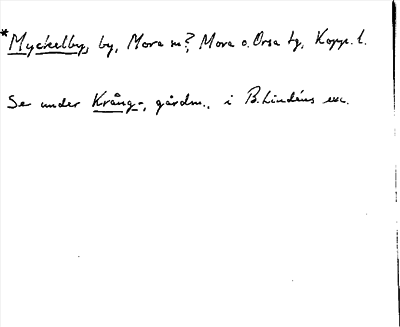 *Myckelby, by, Mora sn? Mora o. Orsa tg, Kopp. l.
Se under Krång-, gårdn., i B. Lindéns exc.